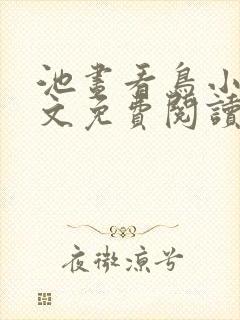 池畫看鳥小
文免費閱讀
夜微涼兮